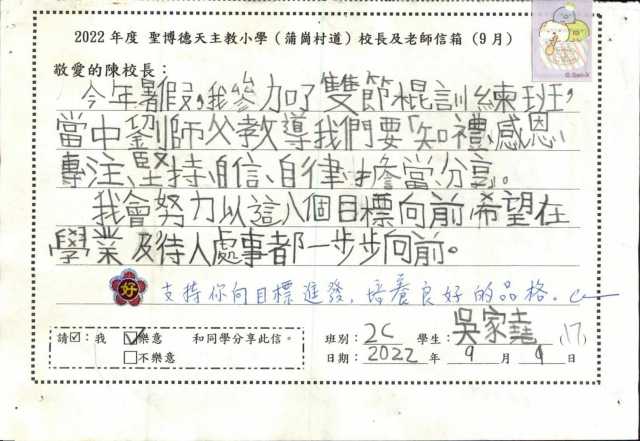 2022 年度 聖博德天主教小學（蒲崗村道）校長及老師信箱（9月）
敬愛的陳校長：
今年暑假，我參加了雙節棍訓練班，
當中劉師父教導我們要「知禮、感恩、
專注、堅持、自信、自律、擔當、分享」。
我會努力以這八個目標向前，希望在
學業及待人處事都一步步向前。
好 支持你向目標進發，培養良好的品格。
請☑：我 ☑樂意 和同學分享此信。
□不樂意
班別：2C 學生：吳家堯 (17)
日期：2022 年 9 月 9 日